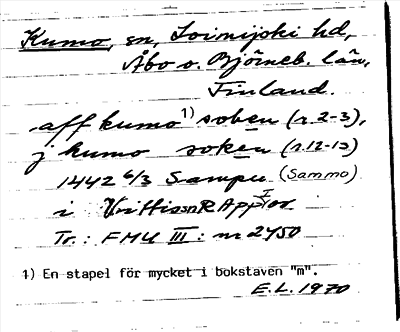 Kumo, sn, Loimijoki hd,
Åbo o. Björneb. län,
Finland.
aff kumo 1) soben (r. 2-3),
j kumo soken (r. 12-13)
1442 6/3 Sampu (Sammo)
i
Tr.: FMU III: nr 2450
1) En stapel för mycket i bokstaven "m".
E.L. 1970